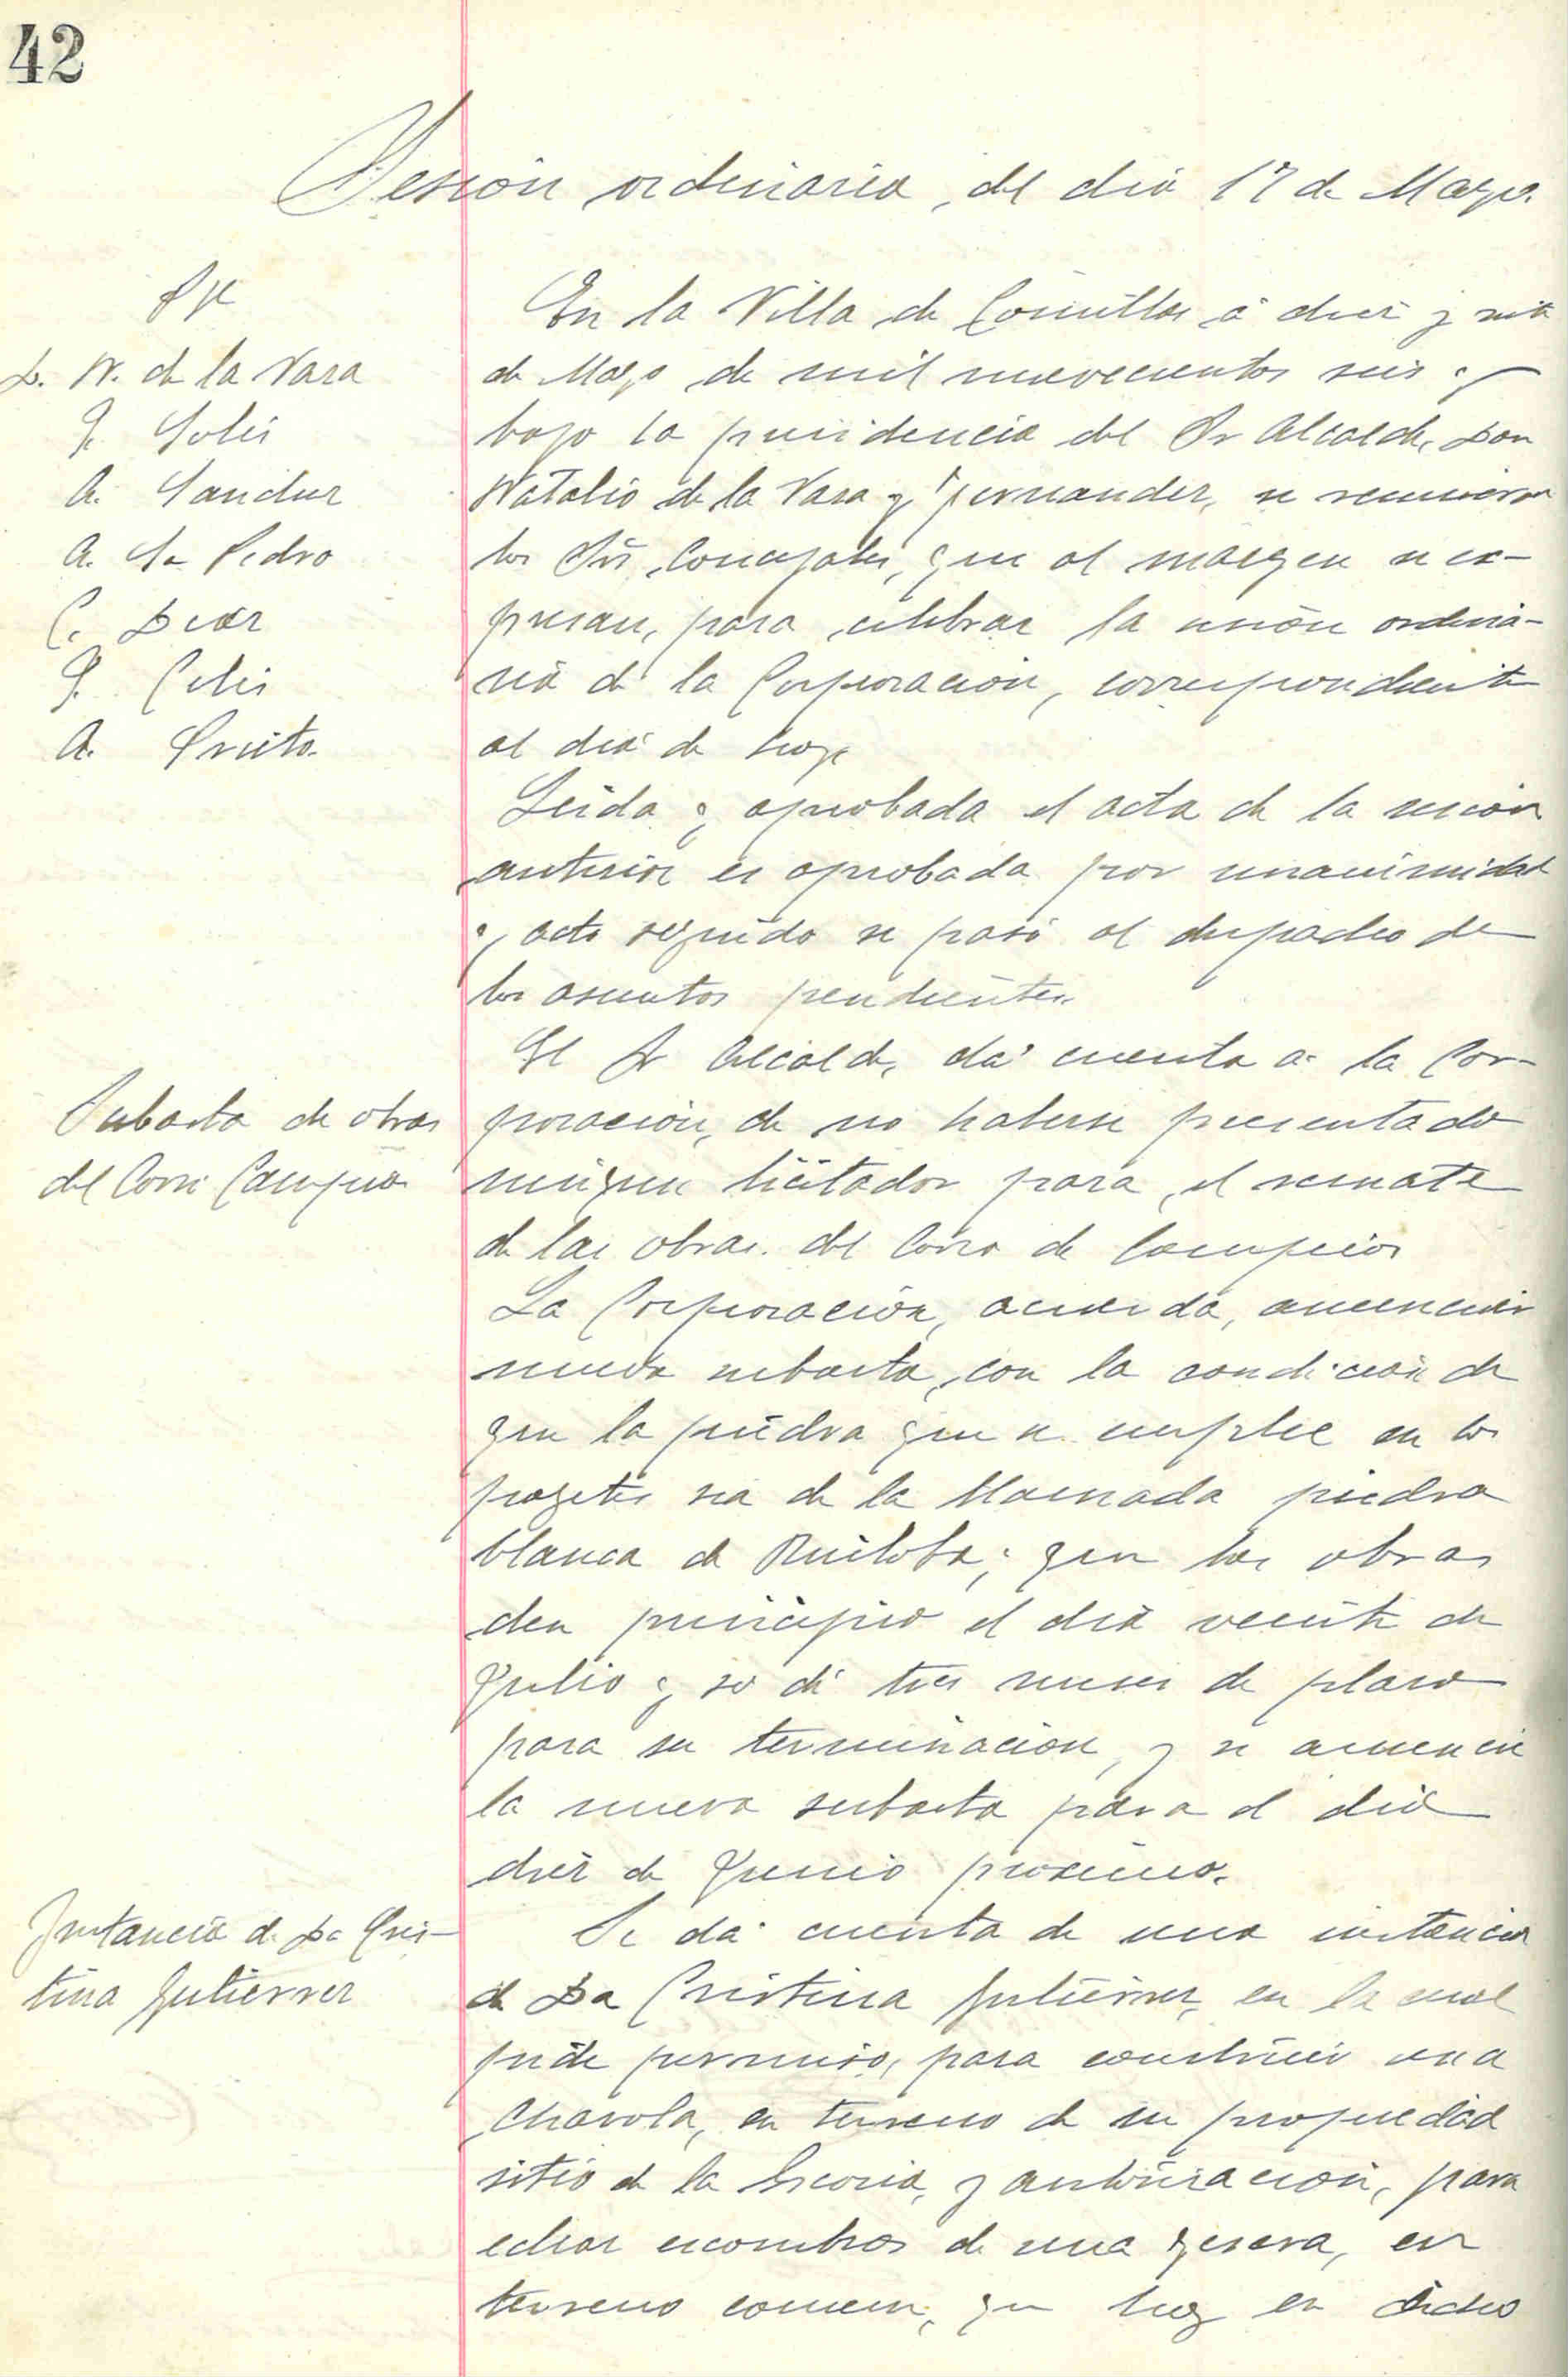 42
Sesión ordinaria, del dia 17 de Mayo.
D. N. de la Vara
J. Solis
A. Sanchez
A. Sn Pedro
C. Diaz
J. Celis
A. Prieto
En la Villa de Comillas á diez y siete
de Mayo de mil novecientos seis y
bajo la presidencia del Sr Alcalde, Don
Natalio de la Vara y Fernandez, se reunieron
los Srs Concejales, que al margen se ex-
presan, para celebrar la sesión ordina-
ria de la Corporación, correspondiente
al dia de hoy
Leida y aprobada el acta de la sesión
anterior es aprobada por unanimidad
y acto seguido se pasó al despacho de
los asuntos pendientes.
Subasta de obras
del Corro Campios
El Sr Alcalde, dá cuenta a la Cor-
poración, de no haberse presentado
ningun licitador para el remate
de las obras del Corro de Campios
La Corporación, acuerda, anunciar
nueva subasta, con la condición de
que la piedra que se emplee en los
sea de la llamada piedra
blanca de Ruiloba; que las obras
den principio el dia veinte de
Julio y se dé tres meses de plazo
para su terminación, y se anuncie
la nueva subasta para el dia
diez de Junio proximo.
Instancia de Da Cris-
tina Gutierrez
Se dá cuenta de una instancia
de Da Cristina Gutierrez, en la cual
pide permiso, para construir una
Chavola, en terreno de su propiedad
sitio de la Escoria, y autorización, para
echar escombros de una yesera, en
terreno comun, que hay en dicho